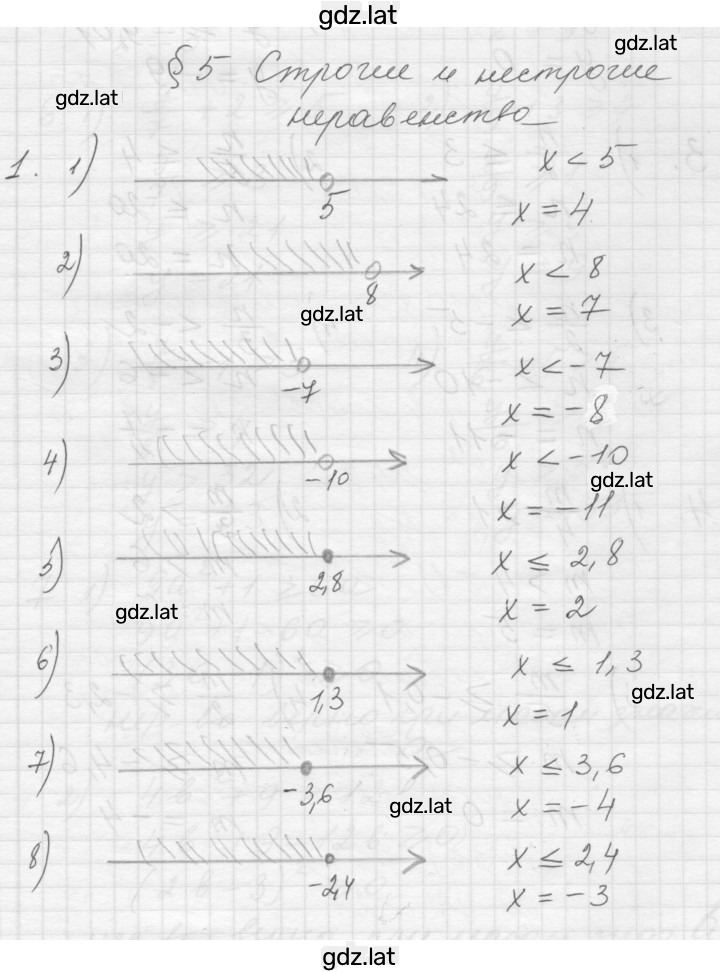 gdz.lat
gdz.lat
§ 5 Строгие и нестрогие
gdz.lat
неравенство
1. 1) 5 x < 5
x = 4
2) 8 x < 8
gdz.lat x = 7
3) -7 x < -7
x = -8
4) -10 x < -10
gdz.lat
x = -11
5) 2,8 x ≤ 2,8
gdz.lat x = 2
6) 1,3 x ≤ 1,3
gdz.lat
x = 1
7) -3,6 x ≤ 3,6
gdz.lat x = -4
8) -2,4 x ≤ 2,4
x = -3
gdz.lat